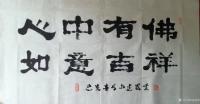 心中有佛
如意吉祥